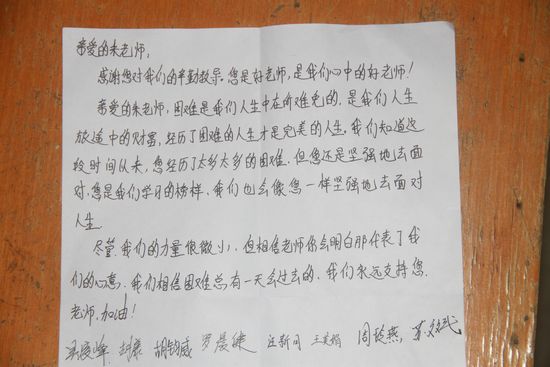 亲爱的朱老师,
感谢您对我们的辛勤教导。您是好老师,是我们心中的好老师!
亲爱的朱老师,困难是我们人生中在所难免的,是我们人生
旅途中的财富,经历了困难的人生才是完美的人生。我们知道这
段时间从来,您经历了太多太多的困难,但您还是坚强地去面
对,您是我们学习的榜样,我们也会像您一样坚强地去面对
人生.
尽管,我们的力量很微小,但相信老师你会明白那代表了我
们的心意,我们相信困难总有一天会过去的,我们永远支持您.
老师,加油!
胡钧威 罗晨健 汪新同 王英娟 周玲燕,